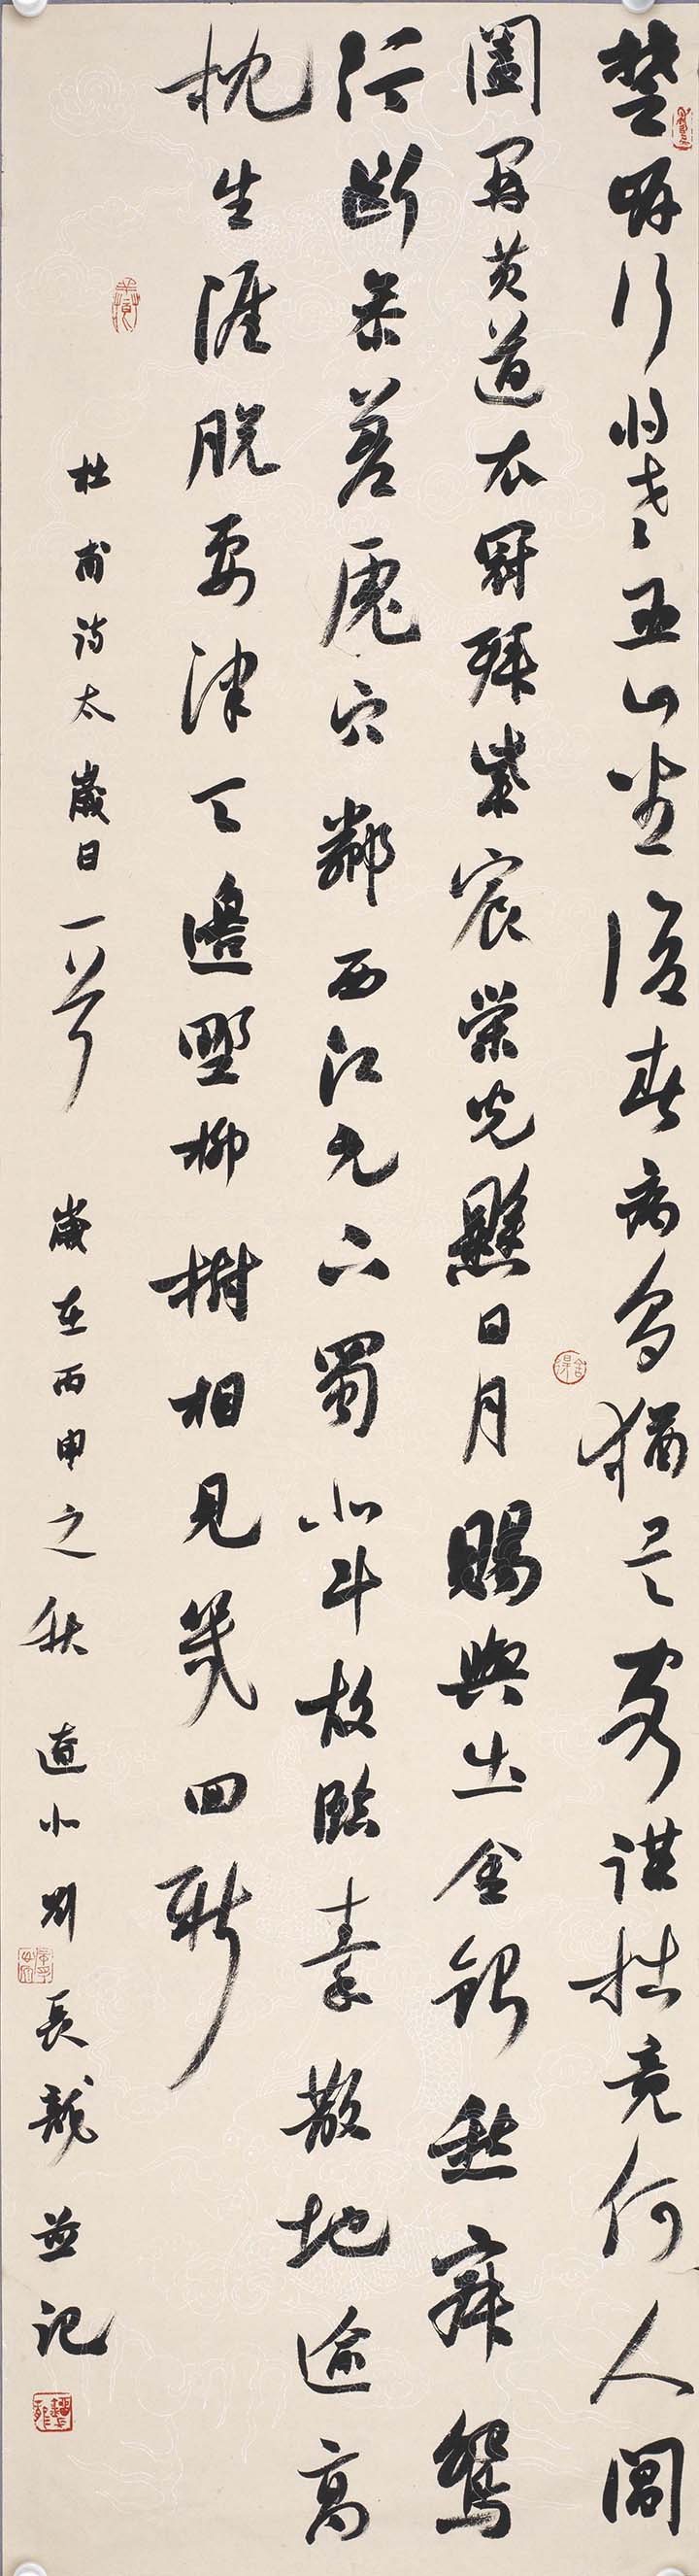 楚岸行將老巫山坐復春病多猶是客謀拙竟何人閶
闔開黃道衣冠拜紫宸榮光懸日月賜與出金銀愁寂鴛
行斷參差虎穴鄰西江元下蜀北斗故臨秦散地逾高
枕生涯脫要津天邊野柳樹相見幾回新
杜甫詩太歲日一首 歲在丙申之秋 北劉長龍並記